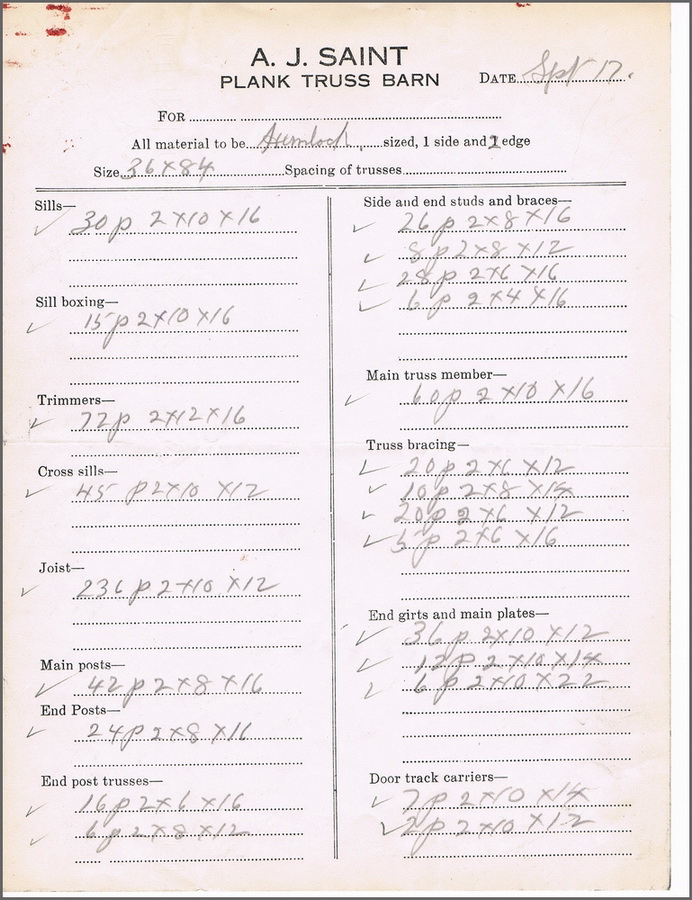 A. J. SAINT
PLANK TRUSS BARN
DATE Spt 17.
FOR
All material to be Hemlock, sized, 1 side and 1 edge
Size 36×84 Spacing of trusses
Sills—
30 p 2×10×16
Sill boxing—
15 p 2×10×16
Trimmers—
72 p 2×12×16
Cross sills—
45 p 2×10×12
Joist—
236 p 2×10×12
Main posts—
42 p 2×8×16
End Posts—
24 p 2×8×16
End post trusses—
16 p 2×6×16
6 p 2×8×12
Side and end studs and braces—
26 p 2×8×16
8 p 2×8×12
28 p 2×6×16
6 p 2×4×16
Main truss member—
60 p 2×10×16
Truss bracing—
20 p 2×6×12
10 p 2×8×14
20 p 2×6×12
5 p 2×6×16
End girts and main plates—
36 p 2×10×12
12 p 2×10×14
6 p 2×10×22
Door track carriers—
7 p 2×10×14
2 p 2×10×12